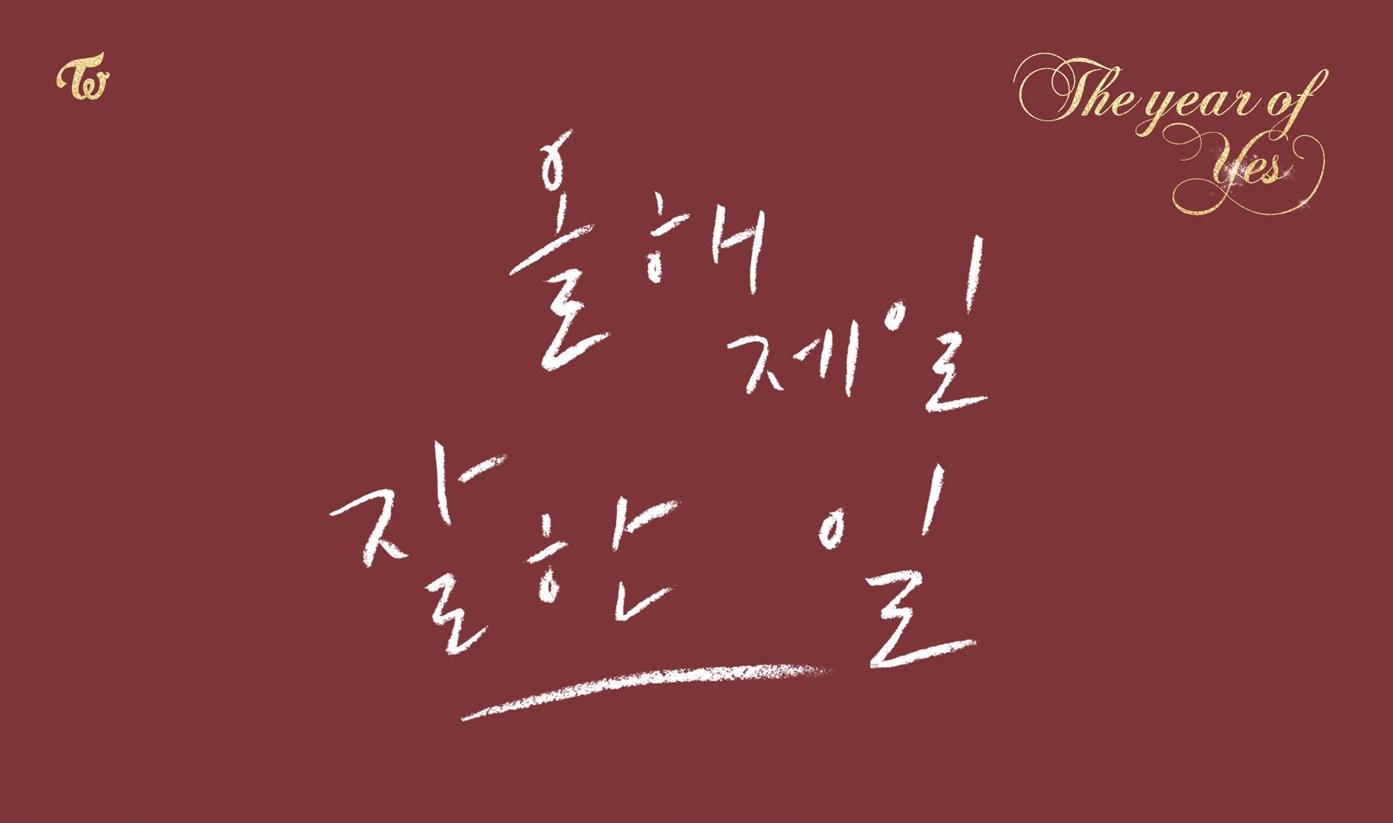 TW
The year of
Yes
올해
제일
잘한 일